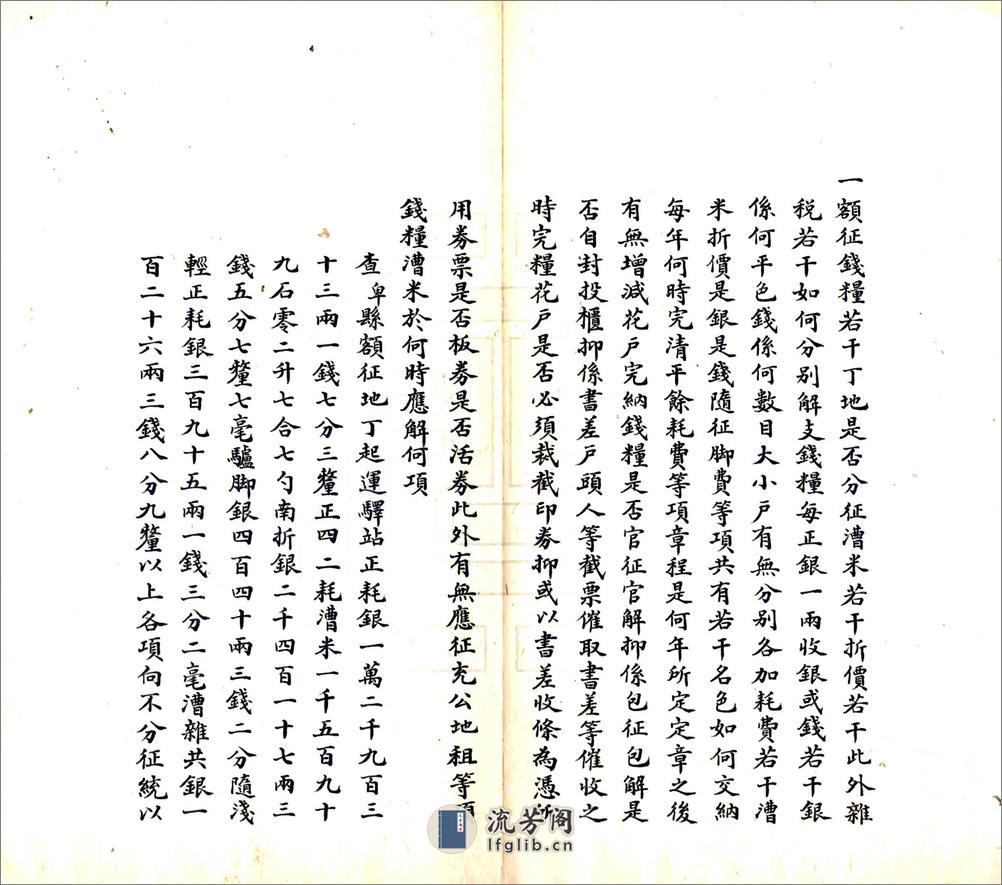 一額征錢糧若干丁地是否分征漕米若干折價若干此外雜
税若干如何分别解支錢糧每正銀一兩收銀或錢若干銀
係何平色錢係何數目大小戸有無分别各加耗費若干漕
米折價是銀是錢隨征脚費等項共有若干名色如何交納
每年何時完清平餘耗費等項章程是何年所定定章之後
有無增減花戸完納錢糧是否官征官解抑係包征包解是
否自封投櫃抑係書差戸頭人等截票催取書差等催收之
時完糧花戸是否必須裁截印券抑或以書差收條為憑所
用券票是否板券是否活券此外有無應征充公地租等項
錢糧漕米於何時應解何項
查卑縣額征地丁起運驛站正耗銀一萬二千九百三
十三兩一錢七分三釐正四二耗漕米一千五百九十
九石零二升七合七勺南折銀二千四百一十七兩三
錢五分七釐七毫驢脚銀四百四十兩三錢二分隨淺
輕正耗銀三百九十五兩一錢三分二毫漕雜共銀一
百二十六兩三錢八分九釐以上各項向不分征統以
流芳阁
lfglib.cn